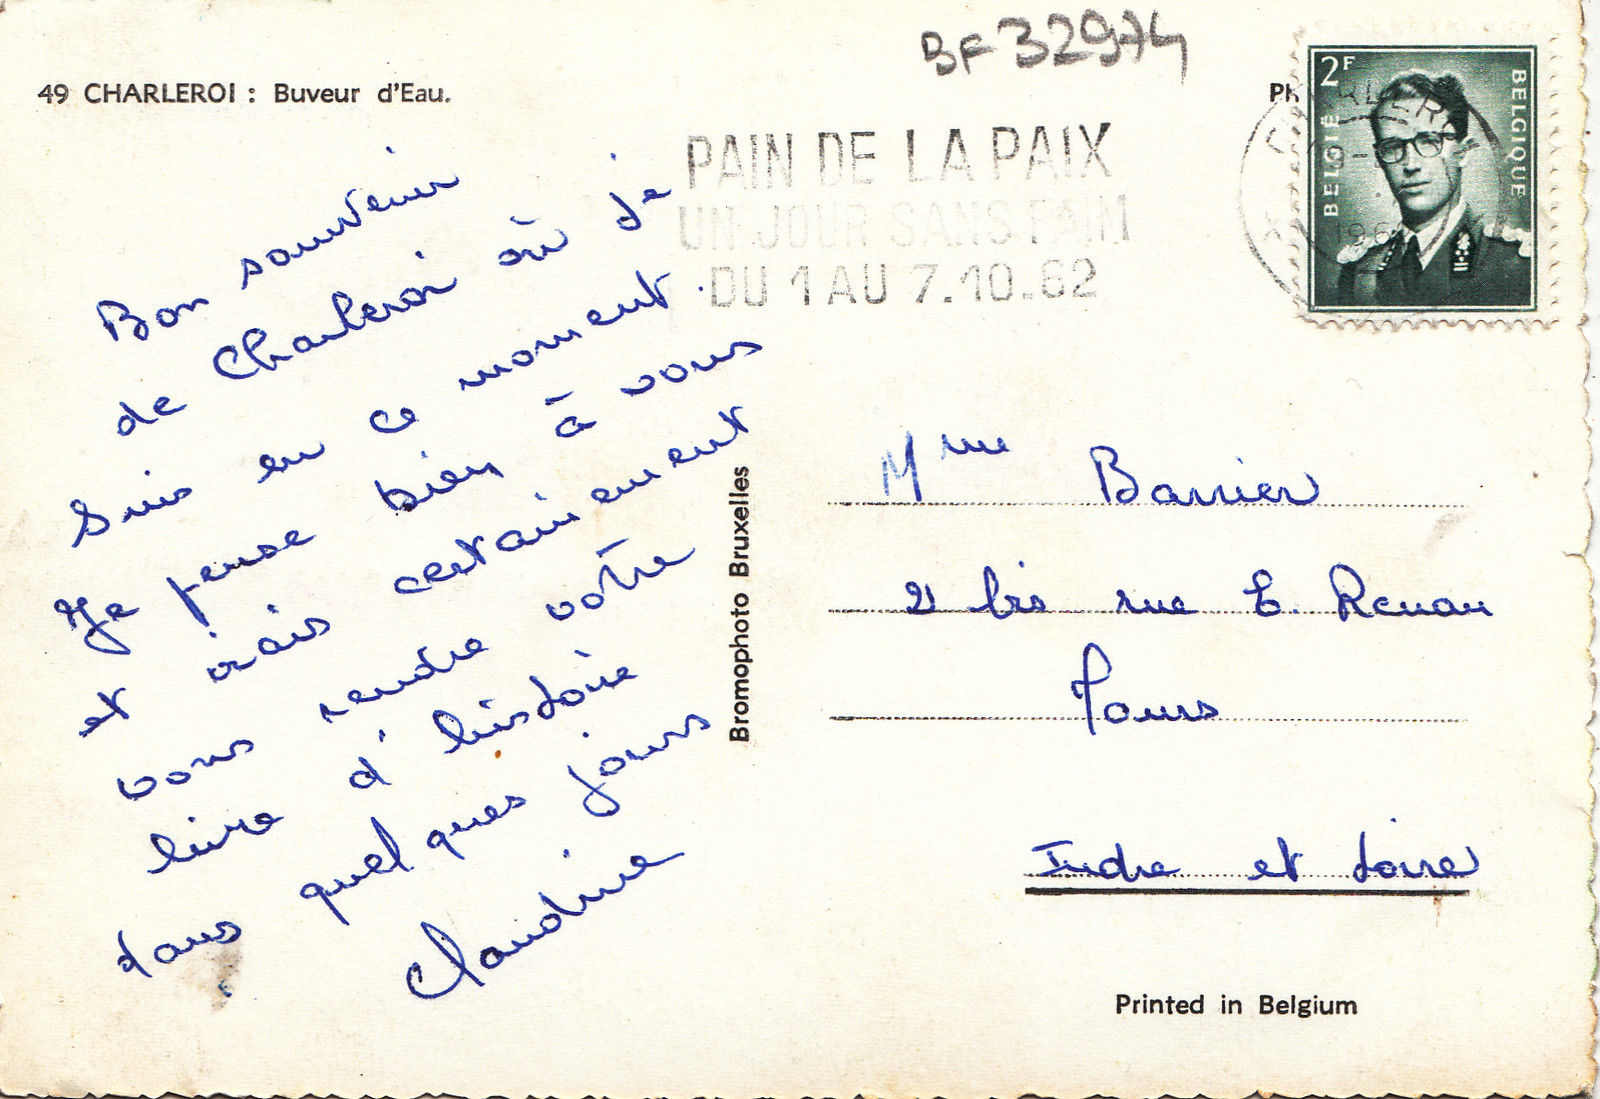 BF 32974
49 CHARLEROI : Buveur d'Eau.
PH
2F
BELGIË
BELGIQUE
CHARLEROI
PAIN DE LA PAIX
UN JOUR SANS FAIM
DU 1 AU 7.10.62
Bon souvenir
de Charleroi où je
suis en ce moment.
Je pense bien à vous
et irais certainement
vous rendre votre
livre d'histoire
dans quelques jours
Claudine
Bromophoto Bruxelles
Mme Barrier
21 bis rue E. Renan
Tours
Indre et Loire
Printed in Belgium